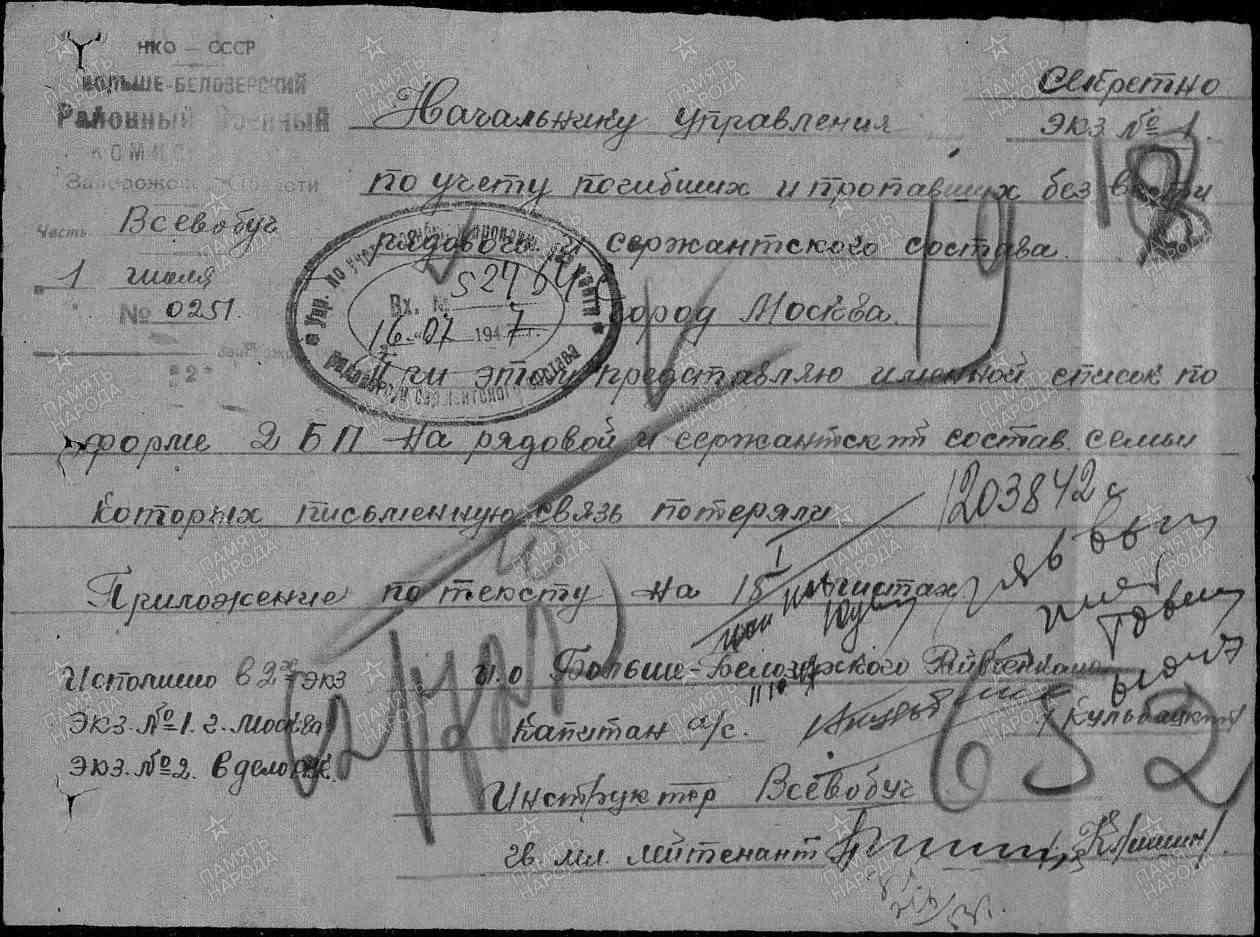 НКО — СССР
БОЛЬШЕ-БЕЛОЗЕРСКИЙ
Районный Военный
КОМИС
Запорожской Области
Часть Всевобуч
"1" июля
№ 0251.
"2"
Секретно
экз № 1.
Начальнику управления
по учету погибших и пропавших без вести
рядового и сержантского состава.
город Москва.
Упр. по учету
рядового и сержантского состава
Вх. №
16 07 1947
18
10
При этом представляю именной список по
форме 2 БП на рядовой и сержантский состав семьи
которых письменную связь потеряли
1203842с
Приложение по тексту на 15 листах
Исполнено в 2х экз
Экз. №1. г. Москва
Экз. №2. в дело рвк.
и.о Больше-Белозерского Райвоенкома
Капитан а/с. /Кульбацкий/
Инструктор Всевобуч
гв. мл. лейтенант /Клишин/
652
ПАМЯТЬ НАРОДА